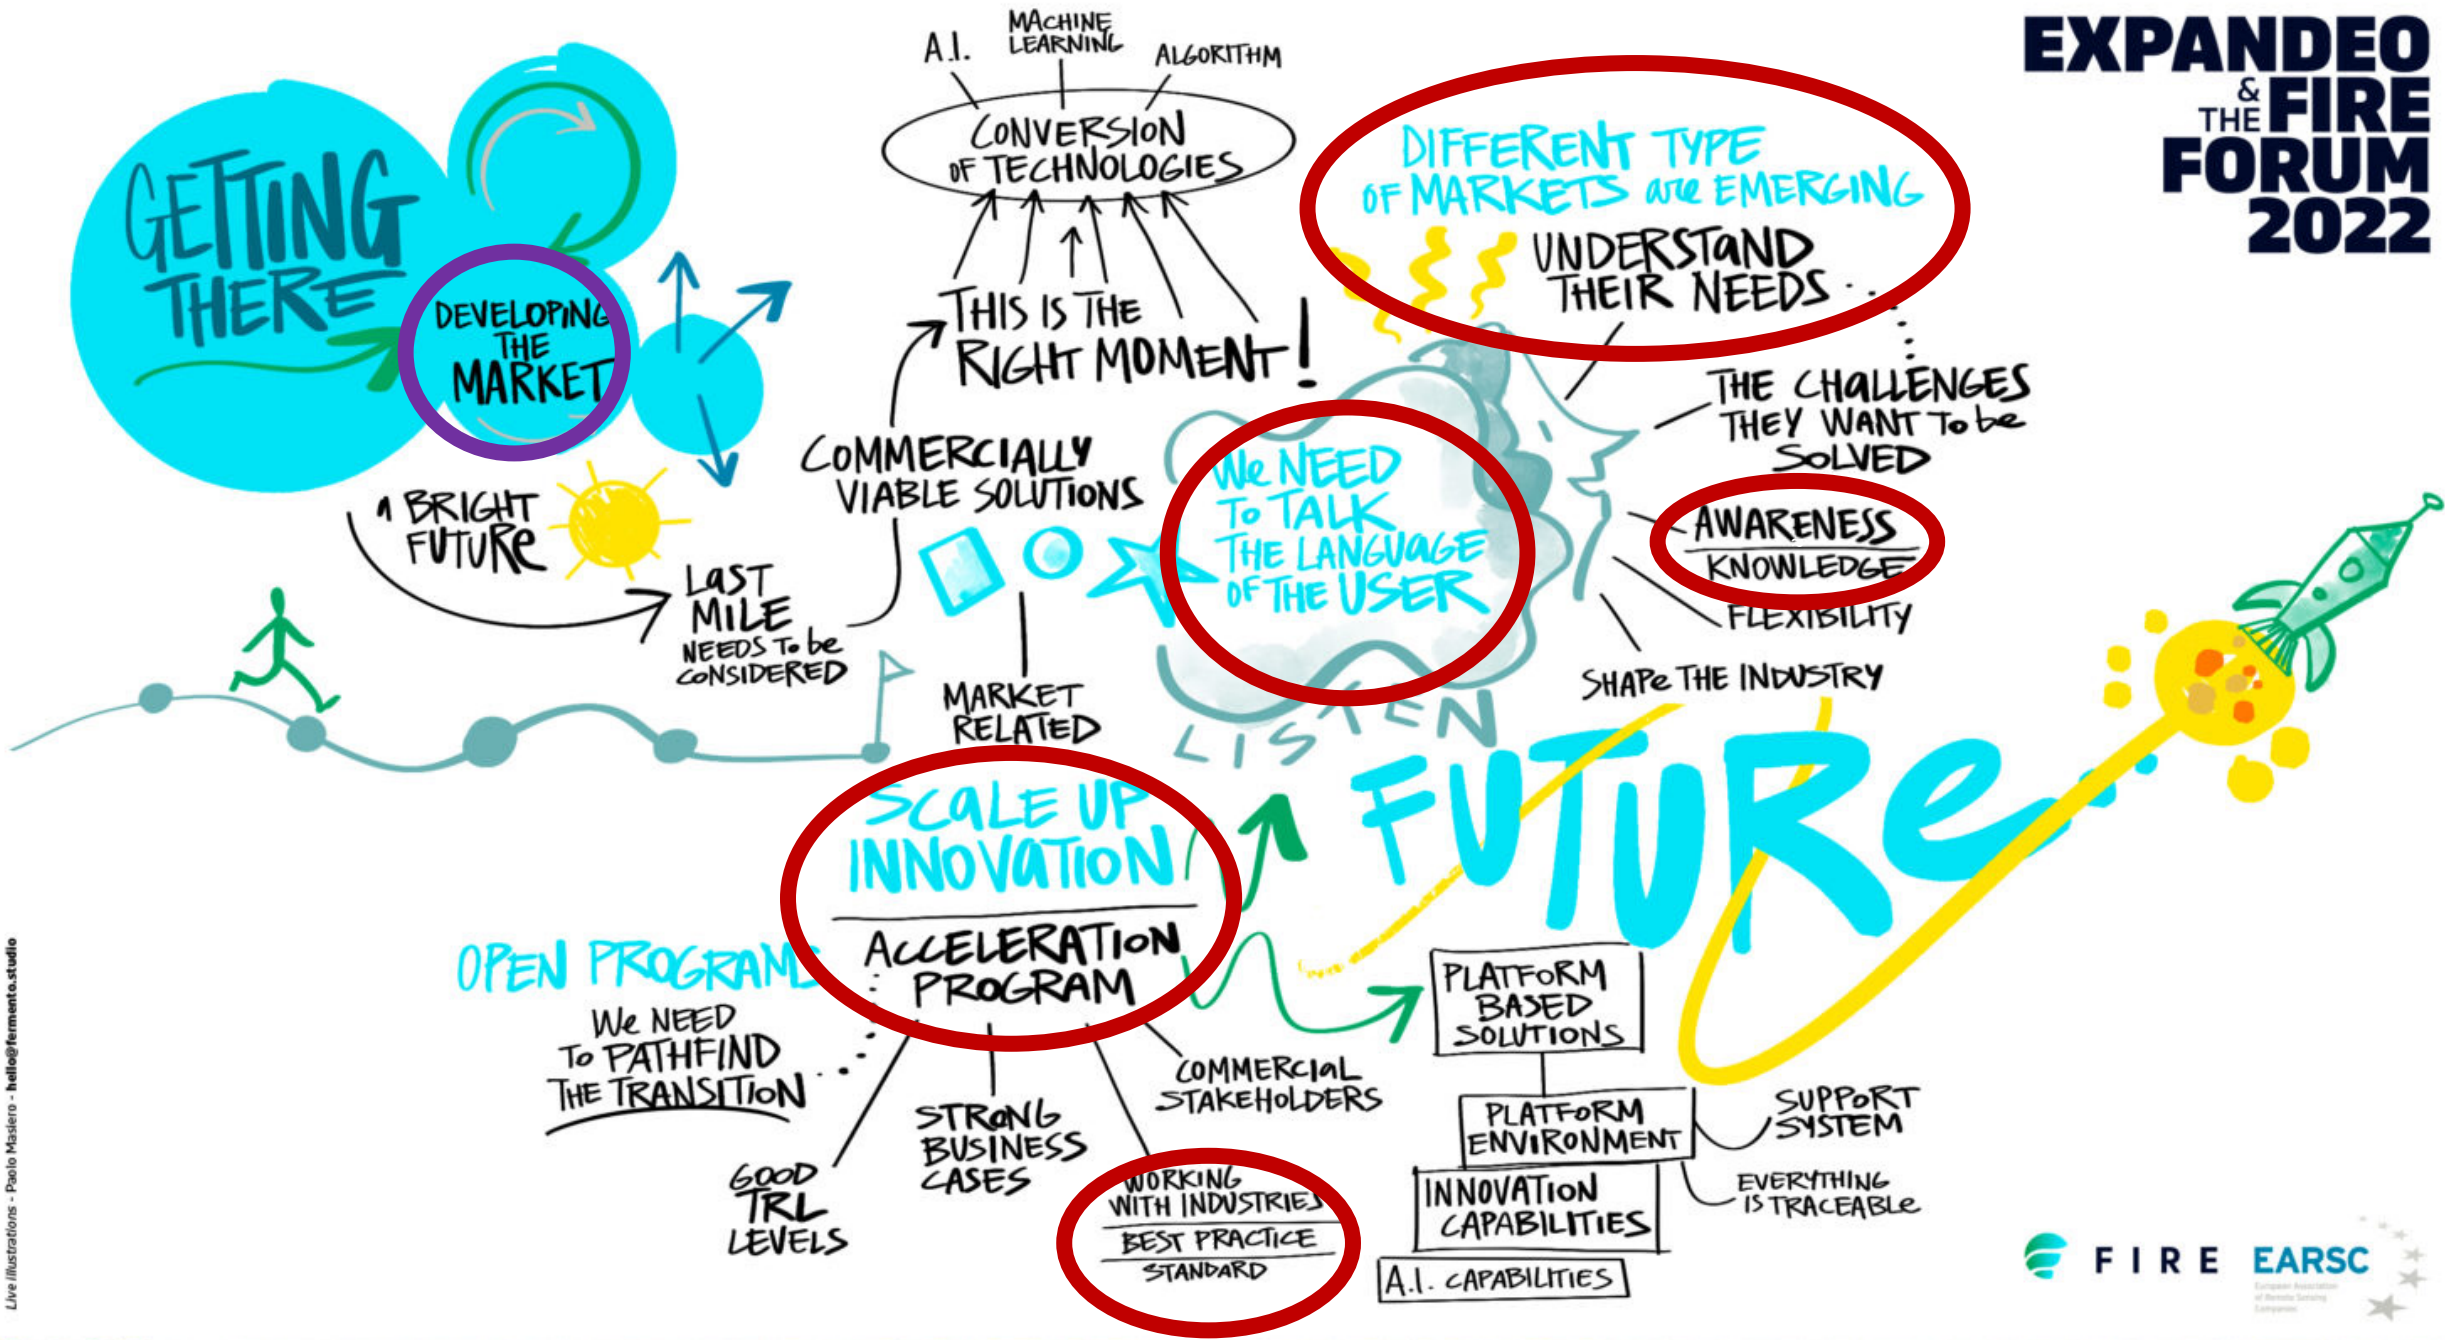 EXPANDEO
& THE FIRE
FORUM
2022
GETTING
THERE
DEVELOPING
THE
MARKET
A BRIGHT
FUTURE
LAST
MILE
NEEDS To be
CONSIDERED
A.I.
MACHINE
LEARNING
ALGORITHM
CONVERSION
OF TECHNOLOGIES
THIS IS THE
RIGHT MOMENT!
COMMERCIALLY
VIABLE SOLUTIONS
MARKET
RELATED
DIFFERENT TYPE
OF MARKETS are EMERGING
UNDERSTAND
THEIR NEEDS
THE CHALLENGES
THEY WANT To be
SOLVED
We NEED
To TALK
THE LANGUAGE
OF THE USER
LISTEN
AWARENESS
KNOWLEDGE
FLEXIBILITY
SHAPe THE INDUSTRY
FUTURe
SCALE UP
INNOVATION
ACCELERATION
PROGRAM
OPEN PROGRAMS
We NEED
To PATHFIND
THE TRANSITION
GOOD
TRL
LEVELS
STRONG
BUSINESS
CASES
WORKING
WITH INDUSTRIES
BEST PRACTICE
STANDARD
COMMERCIAL
STAKEHOLDERS
PLATFORM
BASED
SOLUTIONS
PLATFORM
ENVIRONMENT
SUPPORT
SYSTEM
EVERYTHING
IS TRACEABLe
INNOVATION
CAPABILITIES
A.I. CAPABILITIES
Live illustrations - Paolo Masiero - hello@fermento.studio
FIRE
EARSC
European Association
of Remote Sensing
Companies